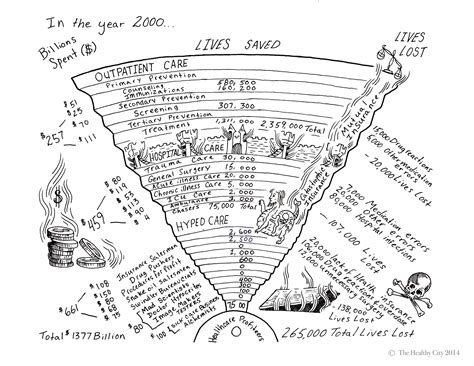 In the year 2000...
Billions
Spent ($)
LIVES SAVED
LIVES
LOST
OUTPATIENT CARE
Primary Prevention
Counseling 580,500
Immunizations 160,200
Secondary Prevention
Screening 307,300
Tertiary Prevention
Treatment 1,311,000
2,359,000 Total
$51
$25
$70
$111
$257
HOSPITAL CARE
Trauma Care 30,000
General Surgery 15,000
Acute illness Care 20,000
Chronic illness Care 5,000
ICU Care 2,000
Ambulance 3,000
Chasers 75,000 Total
$80
$119
$53
$113
$90
$4
$459
HYPED CARE
2,600
2,500
0
1000
0
0
0
0
7500
Healthcare Profiteers
Mutual
Insurance
Insurance
15000 Drug reactions
5,000 other medication
errors
-20,000 Lives Cost
7,000 Medication errors
20,000 Other errors
80,000 Hospital infections
-107,000 Lives
Lost
20,000 Lack of Health insurance
12,000
138,000
Lives Lost
265,000 Total Lives Lost
Insurance Salesmen
Drug Pushers
Procedures for Profit
Snake oil salesmen
Suicidal Bureaucrats
Mad Scientists
Doomed Hospitals
Image Makers
Alchemists
$108
$150
$80
$68
$75
$80
$100
$661
Total $1377 Billion
© The Healthy City 2014